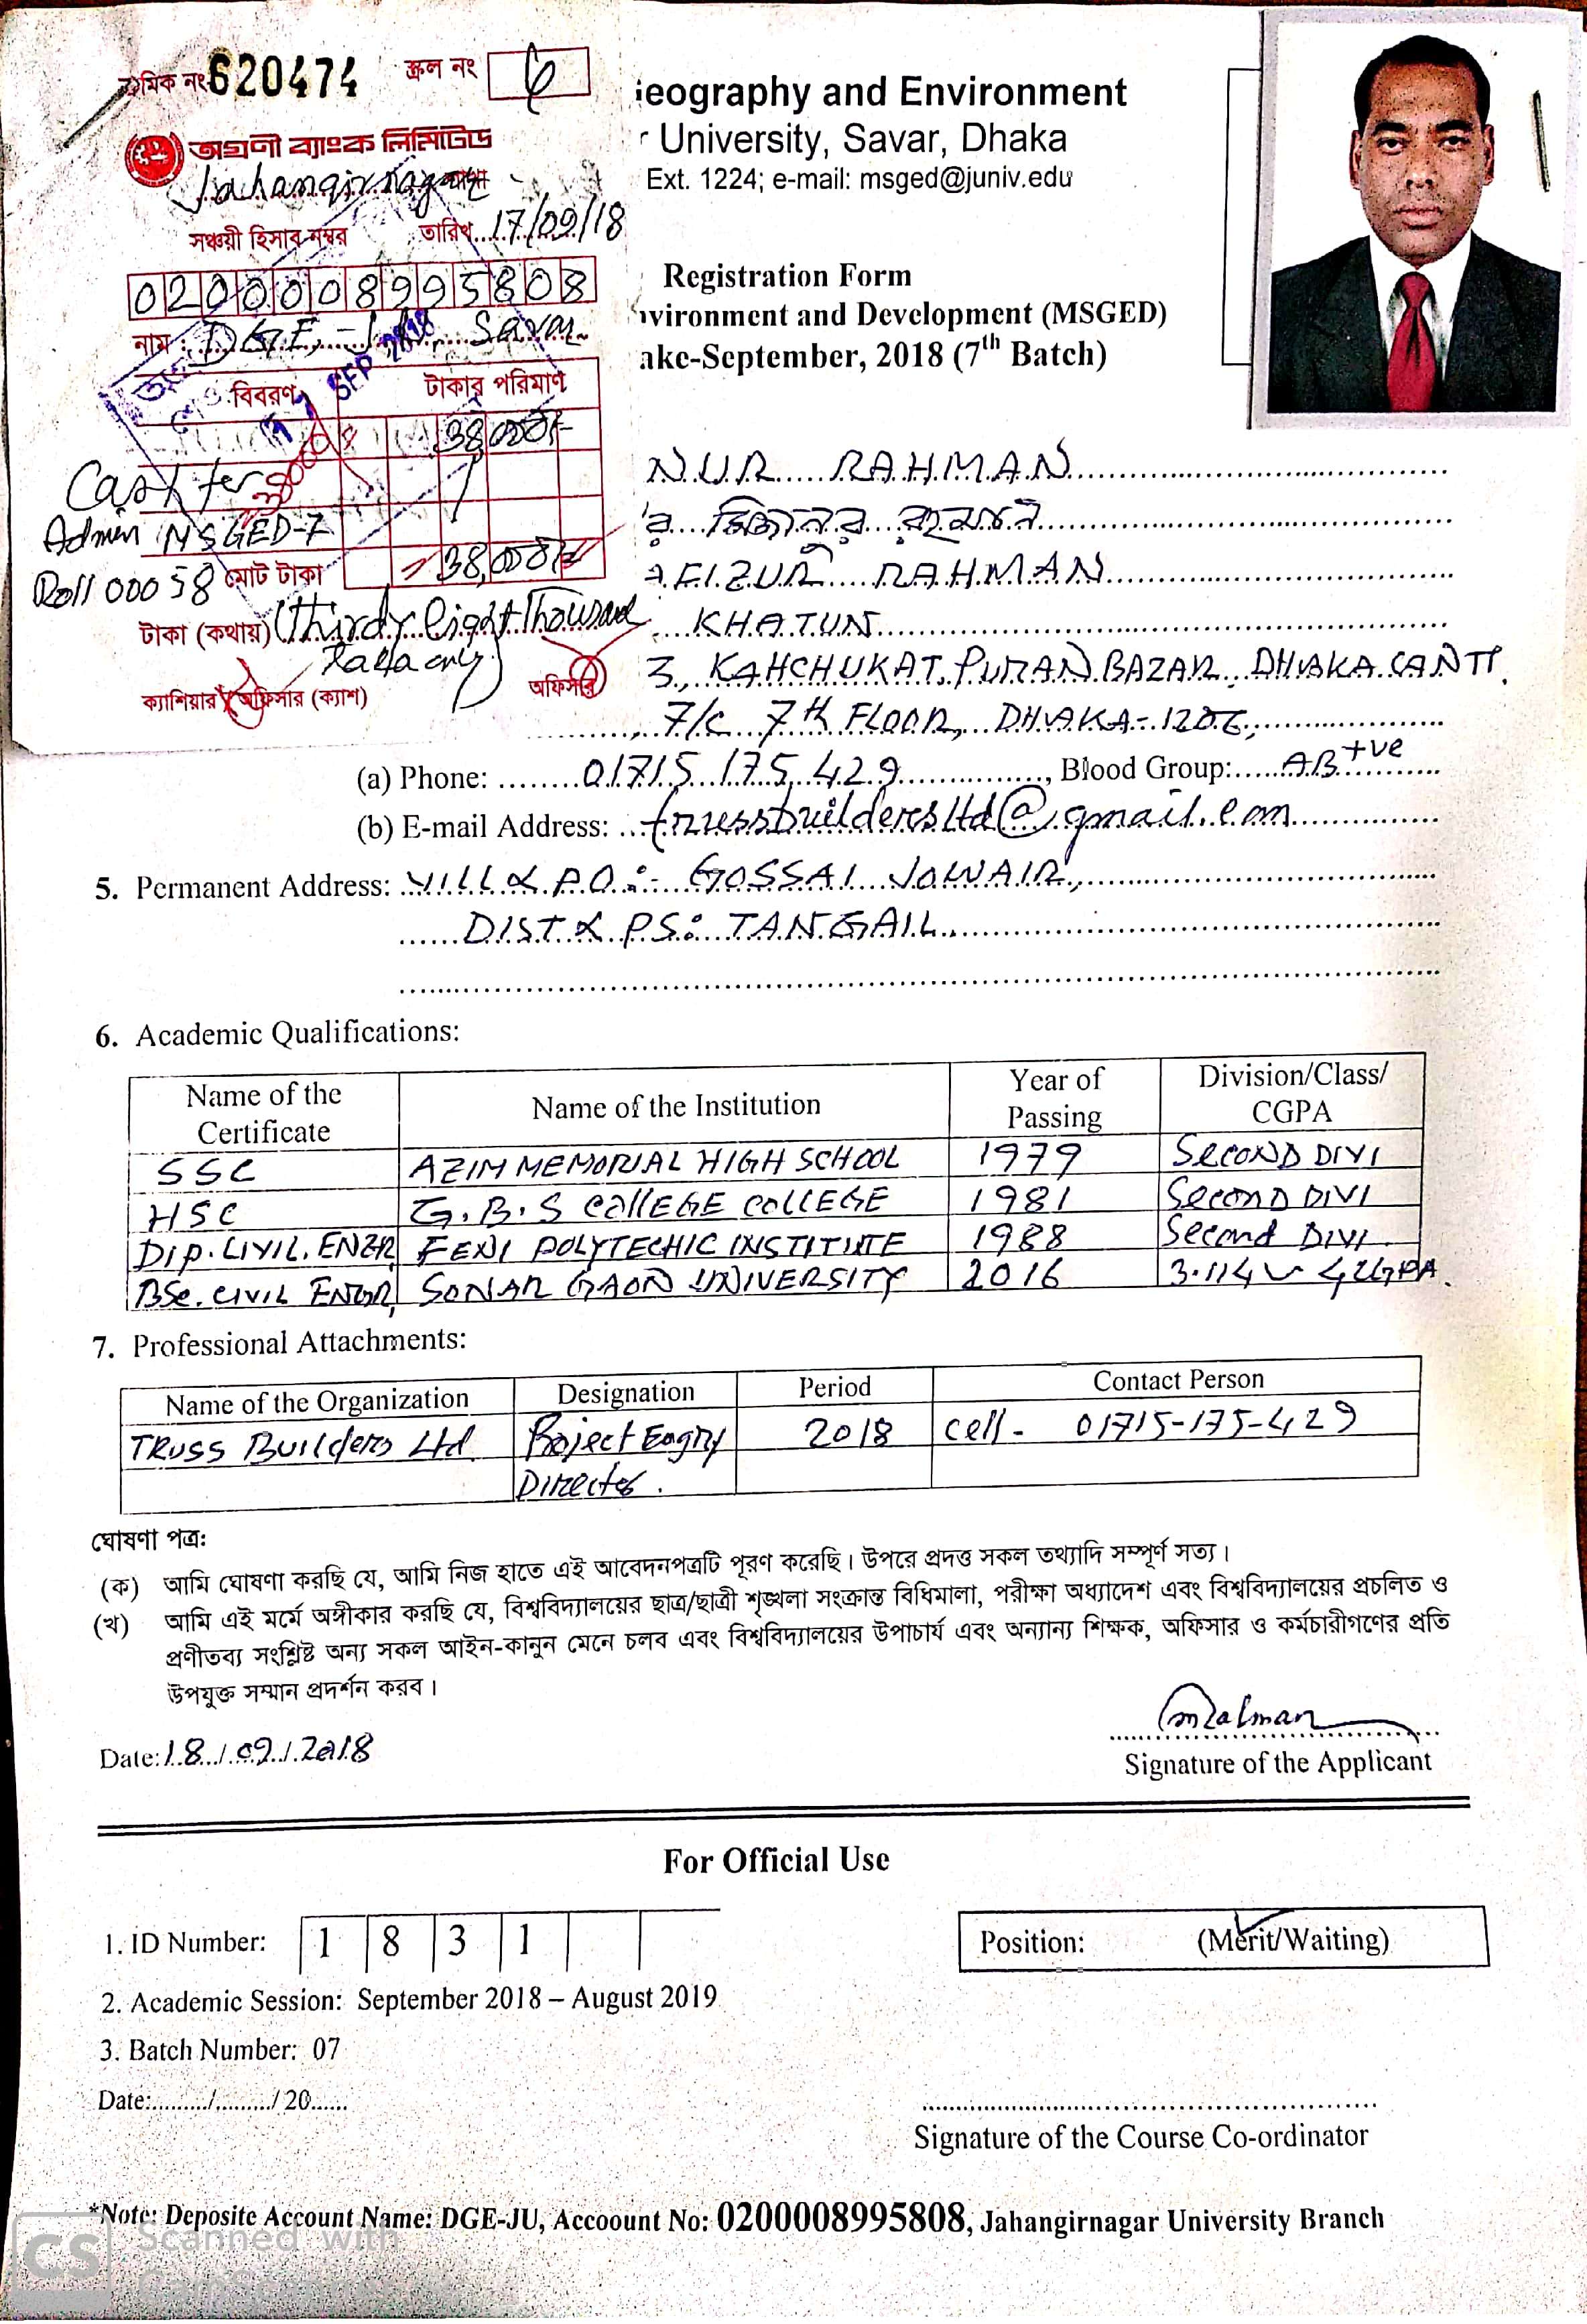 ক্রমিক নং 620474 স্ক্রল নং 6
অগ্রণী ব্যাংক লিমিটেড
Jahangirnagar শাখা
সঞ্চয়ী হিসাব নম্বর তারিখ 17/09/18
0200008995808
নাম : DGE-JU, Savar
বিবরণ টাকার পরিমাণ
38,000/-
Admin MSGED-7
Roll 00058 মোট টাকা 38,000/-
টাকা (কথায়) (Thirdy Eight Thousand
Taka only)
ক্যাশিয়ার অফিসার (ক্যাশ) অফিসার
eography and Environment
University, Savar, Dhaka
Ext. 1224; e-mail: msged@juniv.edu
Registration Form
vironment and Development (MSGED)
ake-September, 2018 (7th Batch)
NUR RAHMAN
র মিজানুর রহমান
FIZUR RAHMAN
KHATUN
3, KAHCHUKAT, PURAN BAZAR, DHAKA CANTT,
7/C 7th FLOOR, DHAKA-1206,
(a) Phone: 01715 175 429, Blood Group: AB +ve
(b) E-mail Address: trussbuildersltd@gmail.com
5. Permanent Address: VILL & P.O:- GOSSAI JOWAIR,
DIST & PS: TANGAIL
6. Academic Qualifications:
Name of the Certificate Name of the Institution Year of Passing Division/Class/ CGPA
SSC AZIM MEMORIAL HIGH SCHOOL 1979 SECOND DIVI
HSC G.B.S COLLEGE COLLEGE 1981 SECOND DIVI
DIP. CIVIL. ENGR FENI POLYTECHIC INSTITUTE 1988 Second DIVI
BSc. CIVIL ENGR, SONAR GAON UNIVERSITY 2016 3.114
7. Professional Attachments:
Name of the Organization Designation Period Contact Person
TRUSS Builders Ltd Project Engry 2018 cell- 01715-175-429
Director.
ঘোষণা পত্র:
(ক) আমি ঘোষণা করছি যে, আমি নিজ হাতে এই আবেদনপত্রটি পূরণ করেছি। উপরে প্রদত্ত সকল তথ্যাদি সম্পূর্ণ সত্য।
(খ) আমি এই মর্মে অঙ্গীকার করছি যে, বিশ্ববিদ্যালয়ের ছাত্র/ছাত্রী শৃঙ্খলা সংক্রান্ত বিধিমালা, পরীক্ষা অধ্যাদেশ এবং বিশ্ববিদ্যালয়ের প্রচলিত ও
প্রণীতব্য সংশ্লিষ্ট অন্য সকল আইন-কানুন মেনে চলব এবং বিশ্ববিদ্যালয়ের উপাচার্য এবং অন্যান্য শিক্ষক, অফিসার ও কর্মচারীগণের প্রতি
উপযুক্ত সম্মান প্রদর্শন করব।
Date: 18/09/2018
Signature of the Applicant
For Official Use
1. ID Number: 1 8 3 1 Position: (Merit/Waiting)
2. Academic Session: September 2018 – August 2019
3. Batch Number: 07
Date:........./........./ 20......
Signature of the Course Co-ordinator
*Note: Deposite Account Name: DGE-JU, Accoount No: 0200008995808, Jahangirnagar University Branch
CS Scanned with
CamScanner